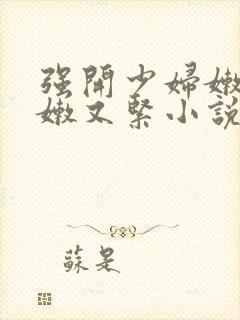 强開少婦嫩
嫩又緊小說
蘇是